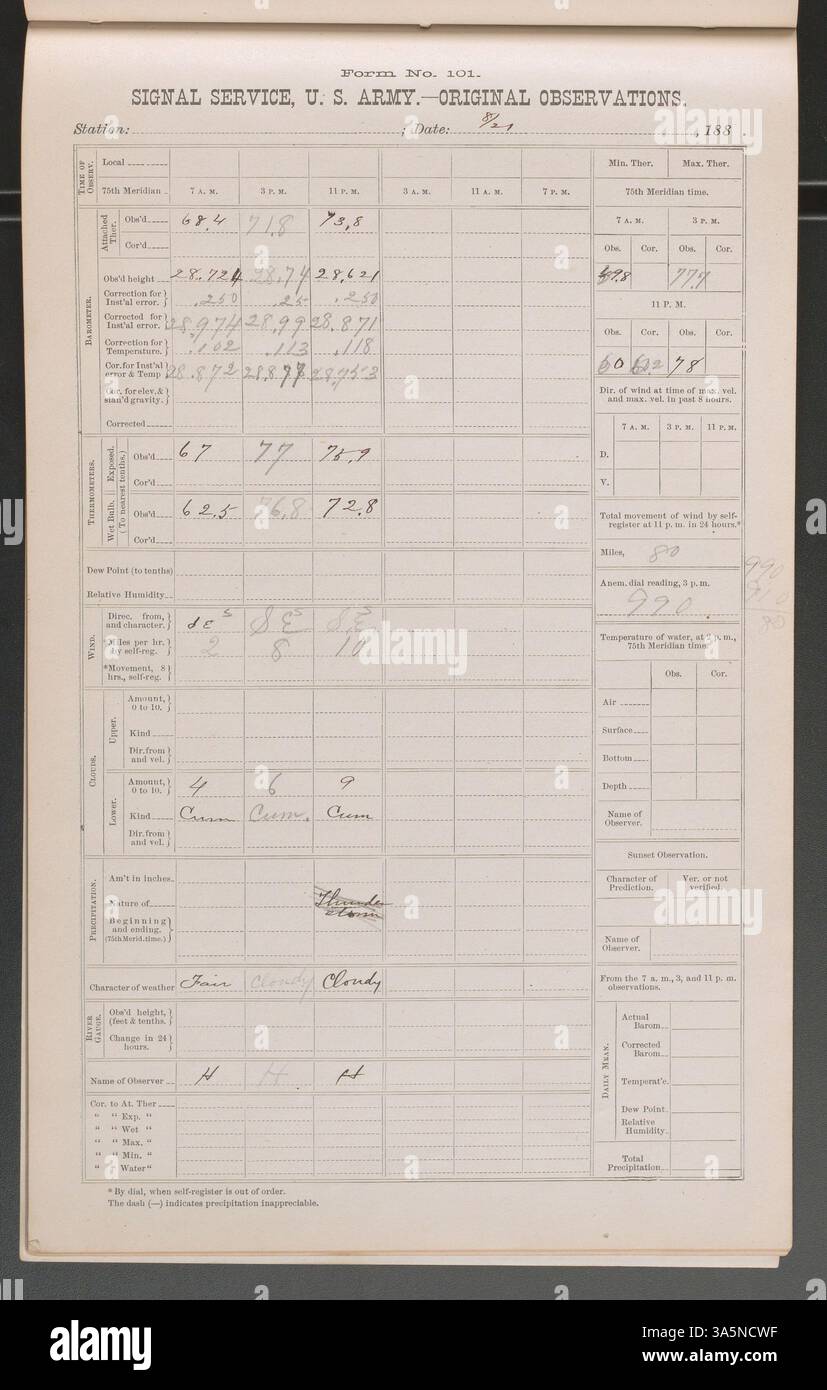 Form No. 101.
SIGNAL SERVICE, U. S. ARMY.—ORIGINAL OBSERVATIONS.
Station: ; Date: 8/21 , 188 .
TIME OF OBSERV.
Local
75th Meridian 7 A. M. 3 P. M. 11 P. M. 3 A. M. 11 A. M. 7 P. M.
BAROMETER.
Attached Ther.
Obs'd 68.4 71.8 73.8
Cor'd
Obs'd height 28.724 28.74 28.621
Correction for Inst'al error. .250 .25 .250
Corrected for Inst'al error. 28.974 28.99 28.871
Correction for Temperature. .102 .113 .118
Cor. for Inst'al error & Temp 28.872 28.877 28.753
Cor. for elev. & stan'd gravity.
Corrected
THERMOMETERS.
Exposed.
(To nearest tenths.)
Obs'd 67 77 75.9
Cor'd
Wet Bulb.
Obs'd 62.5 76.8 72.8
Cor'd
Dew Point (to tenths)
Relative Humidity
WIND.
Direc. from, and character. SE S SE S SE
*Miles per hr. by self-reg. 2 8 10
*Movement, 8 hrs., self-reg.
CLOUDS.
Upper.
Amount, 0 to 10.
Kind
Dir. from and vel.
Lower.
Amount, 0 to 10. 4 6 9
Kind Cum Cum. Cum
Dir. from and vel.
PRECIPITATION.
Am't in inches
Nature of Thunder storm
Beginning and ending. (75th Merid. time.)
Character of weather Fair Cloudy Cloudy
RIVER GAUGE.
Obs'd height, (feet & tenths.)
Change in 24 hours.
Name of Observer H H H
Cor. to At. Ther
" " Exp. "
" " Wet "
" " Max. "
" " Min. "
" " Water "
* By dial, when self-register is out of order.
The dash (—) indicates precipitation inappreciable.
Min. Ther. Max. Ther.
75th Meridian time.
7 A. M. 3 P. M.
Obs. Cor. Obs. Cor.
59.8 77.7
11 P. M.
Obs. Cor. Obs. Cor.
60 78
Dir. of wind at time of max. vel. and max. vel. in past 8 hours.
7 A. M. 3 P. M. 11 P. M.
D.
V.
Total movement of wind by self-register at 11 p. m. in 24 hours.*
Miles, 80
Anem. dial reading, 3 p. m.
990
990
910
80
Temperature of water, at 2 p. m., 75th Meridian time.
Obs. Cor.
Air
Surface
Bottom
Depth
Name of Observer.
Sunset Observation.
Character of Prediction. Ver. or not verified.
Name of Observer.
From the 7 a. m., 3, and 11 p. m. observations.
DAILY MEAN.
Actual Barom.
Corrected Barom.
Temperat'e.
Dew Point.
Relative Humidity.
Total Precipitation
alamy
a
alamy
Image ID: 3A5NCWF
www.alamy.com